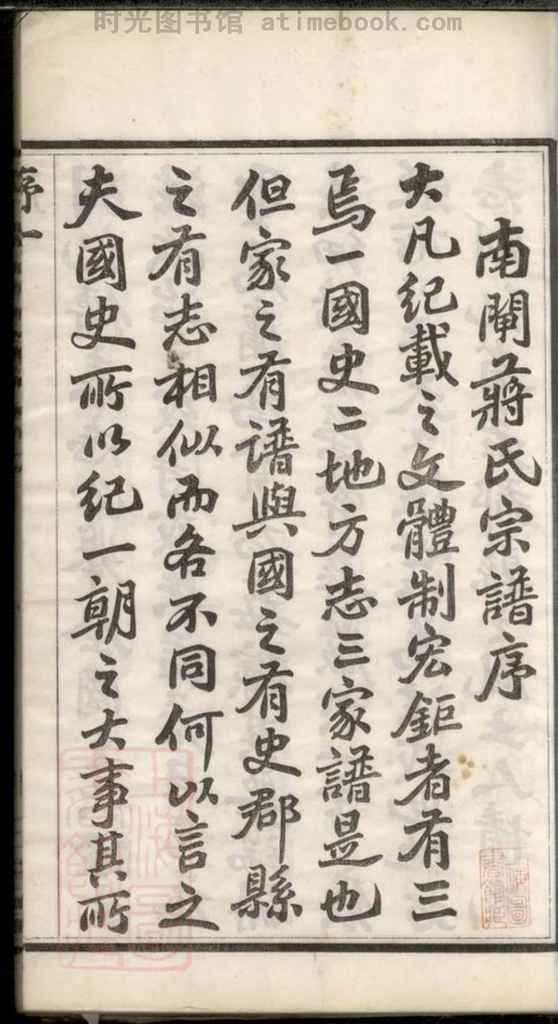 时光图书馆 atimebook.com
南閘蔣氏宗譜序
大凡紀載之文體制宏鉅者有三
焉一國史二地方志三家譜是也
但家之有譜與國之有史郡縣
之有志相似而各不同何以言之
夫國史所以紀一朝之大事其所
序一